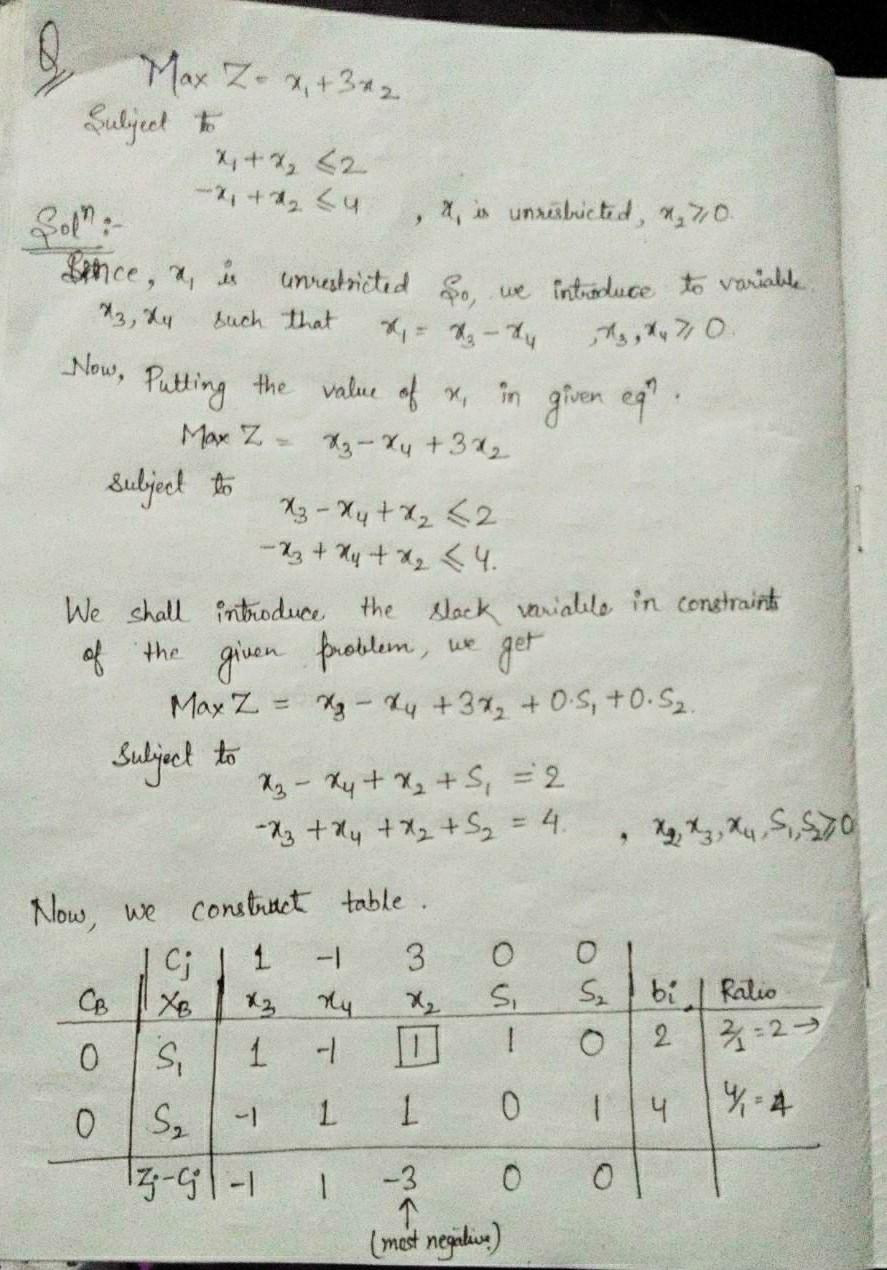 Q
Max Z = x₁ + 3x₂
Subject to
x₁ + x₂ ≤ 2
-x₁ + x₂ ≤ 4 , x₁ is unrestricted, x₂ ≥ 0.
Solⁿ :-
Since, x₁ is unrestricted So, we introduce to variable
x₃, x₄ such that x₁ = x₃ - x₄ , x₃, x₄ ≥ 0.
Now, Putting the value of x₁ in given eqⁿ.
Max Z = x₃ - x₄ + 3x₂
subject to
x₃ - x₄ + x₂ ≤ 2
-x₃ + x₄ + x₂ ≤ 4.
We shall introduce the slack variable in constraints
of the given problem, we get
Max Z = x₃ - x₄ + 3x₂ + 0·S₁ + 0·S₂.
Subject to
x₃ - x₄ + x₂ + S₁ = 2
-x₃ + x₄ + x₂ + S₂ = 4. , x₂, x₃, x₄, S₁, S₂ ≥ 0
Now, we construct table.
Cj 1 -1 3 0 0
CB XB x₃ x₄ x₂ S₁ S₂ bi Ratio
0 S₁ 1 -1 1 1 0 2 2/1 = 2 →
0 S₂ -1 1 1 0 1 4 4/1 = 4
Zj-Cj -1 1 -3 0 0
↑
(most negative)